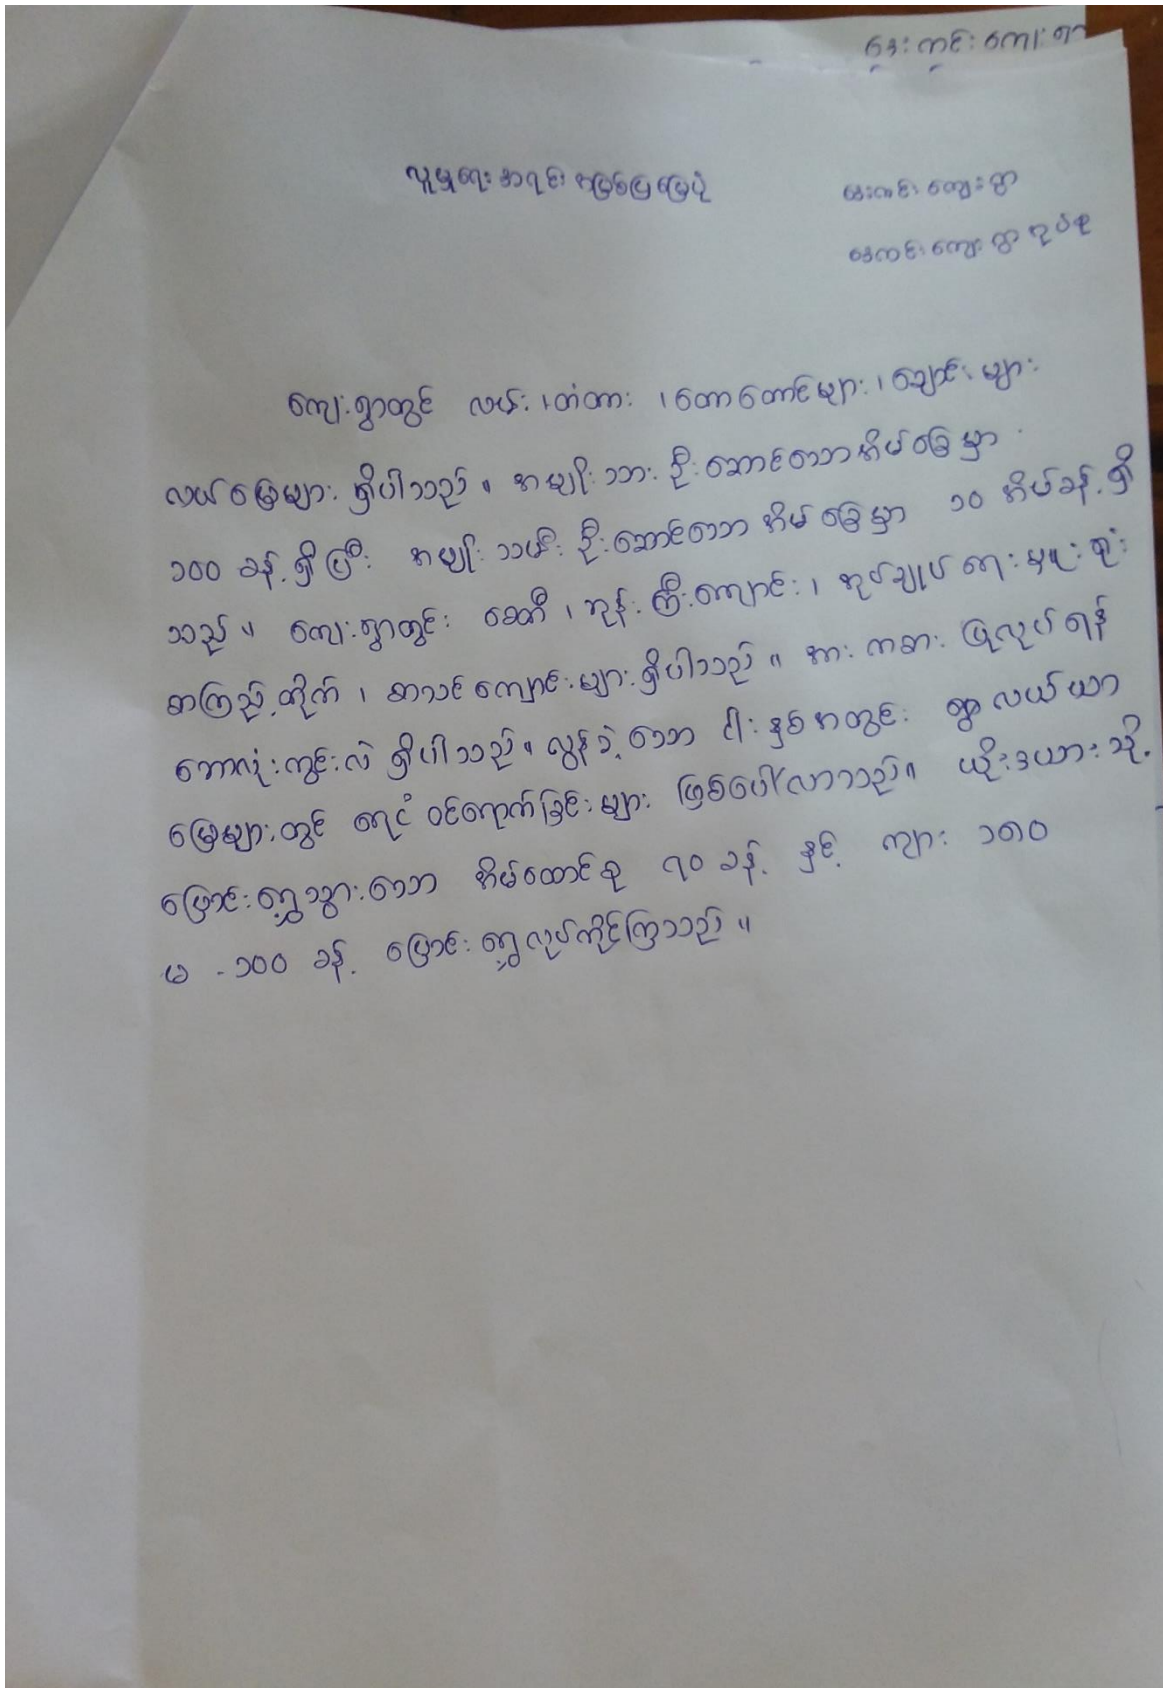 ကျေးရွာ
လူမှုရေး အရင်းအမြစ်ပြမြေပုံ
ကျေးရွာ
ကျေးရွာအုပ်စု
ကျေးရွာတွင် လမ်း ၊ တံတား ၊ တောတောင်များ ၊ ချောင်းများ
လယ်မြေများ ရှိပါသည် ။ အမျိုးသား ဦးဆောင်သောအိမ်ခြေမှာ
၁၀၀ ခန့် ရှိပြီး အမျိုးသမီး ဦးဆောင်သော အိမ်ခြေမှာ ၁၀ အိမ်ခန့် ရှိ
သည် ။ ကျေးရွာတွင်း စေတီ ၊ ဘုန်းကြီးကျောင်း ၊ အုပ်ချုပ်ရေးမှူးရုံး
စာကြည့်တိုက် ၊ စာသင်ကျောင်းများ ရှိပါသည် ။ အားကစား ပြုလုပ်ရန်
ဘောလုံးကွင်းလဲ ရှိပါသည် ။ လွန်ခဲ့သော ငါးနှစ်အတွင်း ရွာလယ်ယာ
မြေများတွင် ရေငံ ဝင်ရောက်ခြင်းများ ဖြစ်ပေါ်လာသည် ။ ယိုးဒယားသို့
ပြောင်းရွှေ့သွားသော အိမ်ထောင်စု ၇၀ ခန့် နှင့် ကျား ၁၅၀
မ - ၁၀၀ ခန့် ပြောင်းရွှေ့လုပ်ကိုင်ကြသည် ။